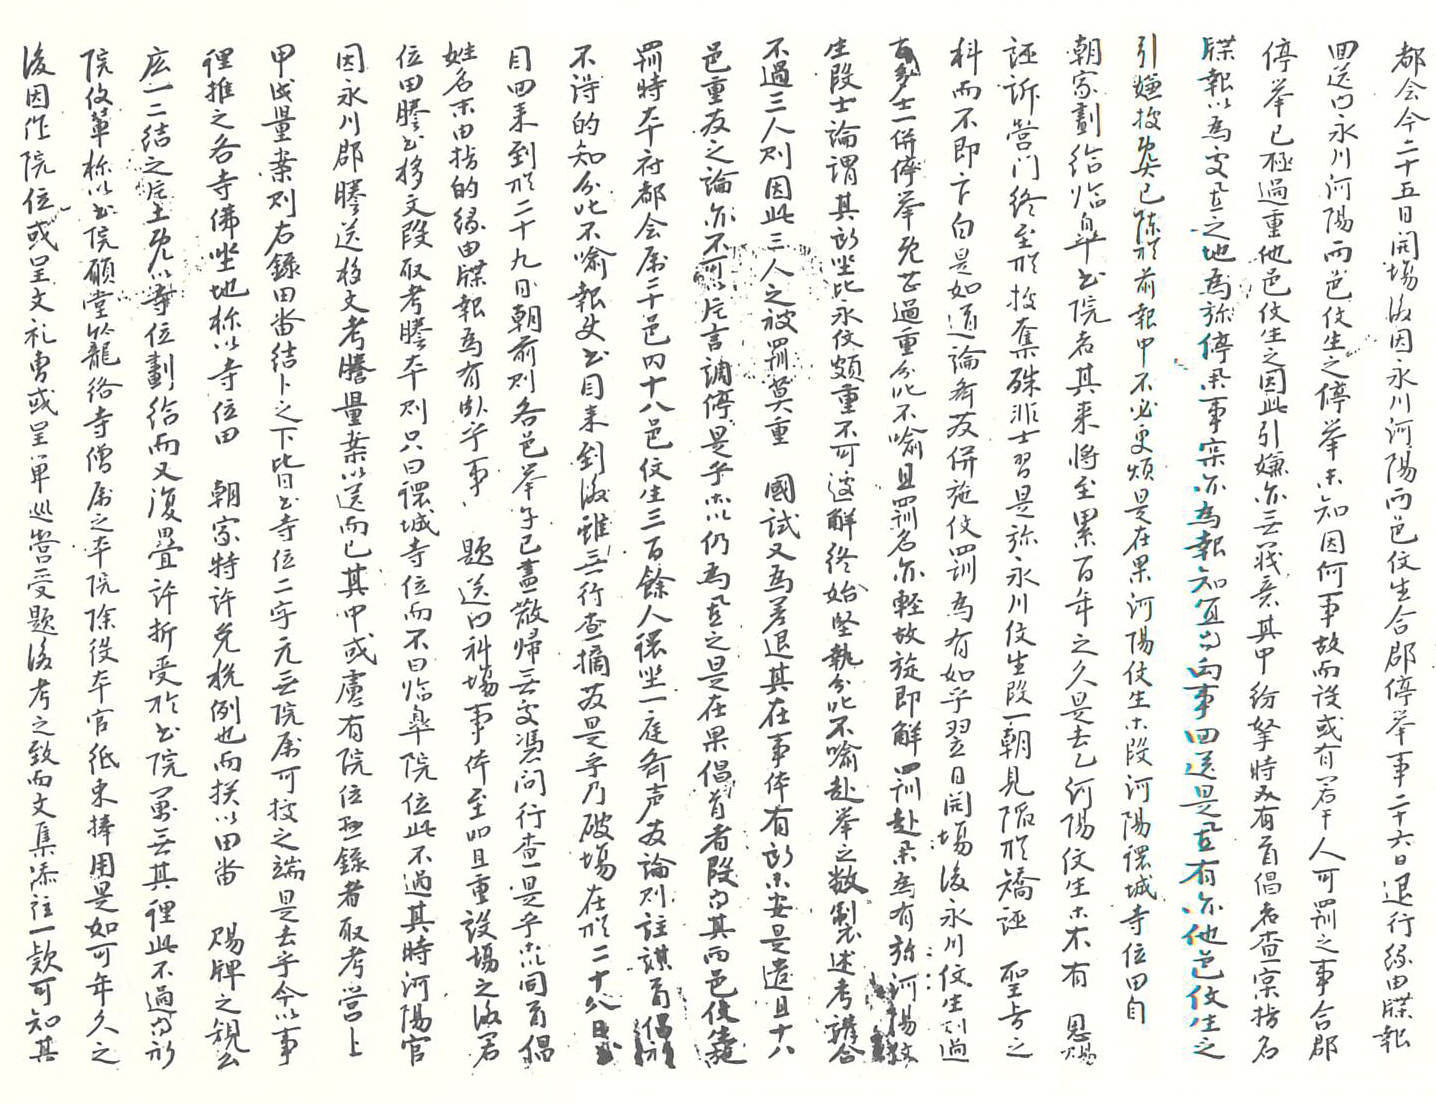 都会今二十五日開場後因永川河陽两邑仗生合郡停举事二十六日退行緣由牒報
回送內永川河陽两邑仗生之停举未知因何事故而設或有若干人可罰之事合郡
停举已極過重他邑仗生之因此引嫌亦云無義意其中紛拏時必有首倡者查実指名
牒報以為定罪之地為旀停举事実亦為報知宜向事回送是置有亦他邑仗生之
引嫌按癸已陳於前報中不必更煩是在果河陽仗生等段河陽環城寺位田自
朝家劃給臨皐書院者其来将至累百年之久是去乙河陽仗生等不有 恩賜
誣訴营门終至於按奪殊非士習是旀永川仗生段一朝見陷於矯誣 聖旨之
科而不即卞白是如道論齊发併施仗罰為有如乎翌日開場後永川仗生則過
百多士一併停举旣甚過重兺不喻且罰名亦輕故旋即解罰赴举為有旀河陽仗
生段士論謂其所坐比永仗頗重不可遽解終始堅執兺不喻赴举之数製述考講合
不過三人則因此三人之被罰莫重 國試又為差退其在事体有所未安是遣且十八
邑重发之論亦不可以片言調停是乎等以仍為置之是在果倡首者段向其两邑仗生施
罰時本府都会属二十邑內十八邑仗生三百餘人環坐一庭齊声发論則註謀首倡亦
不得的知兺不喻報文書目来到後雖三行查摘发是乎乃破場在於二十八日
目回来到於二十九日朝前則各邑举子已盡散帰無定憑问行查是乎等以同首倡
姓名末由指的緣由牒報為有臥乎事 題送內科場事体至如且重設場之後君
位田謄書移文段取考謄本則只曰環城寺位而不曰臨皐院位此不過其時河陽官
因永川郡謄送移文考謄量案以送而已其中或慮有院位懸錄者取考营上
甲戌量案則右錄田畓結卜之下皆書寺位二字元無院属可按之端是去乎今以事
裡推之各寺佛坐地称以寺位田 朝家特許免税例也而挨以田畓 賜牌之規公
庄一二結之庄土旣以寺位劃給而又復疊許折受於書院萬無其裡此不過向前
院仗輩称以書院願堂於籠絡寺僧属之本院除役本官紙束捧用是如可年久之
後因作院位或呈文礼曹或呈単巡营受題後考之致而文集添註一款可知其